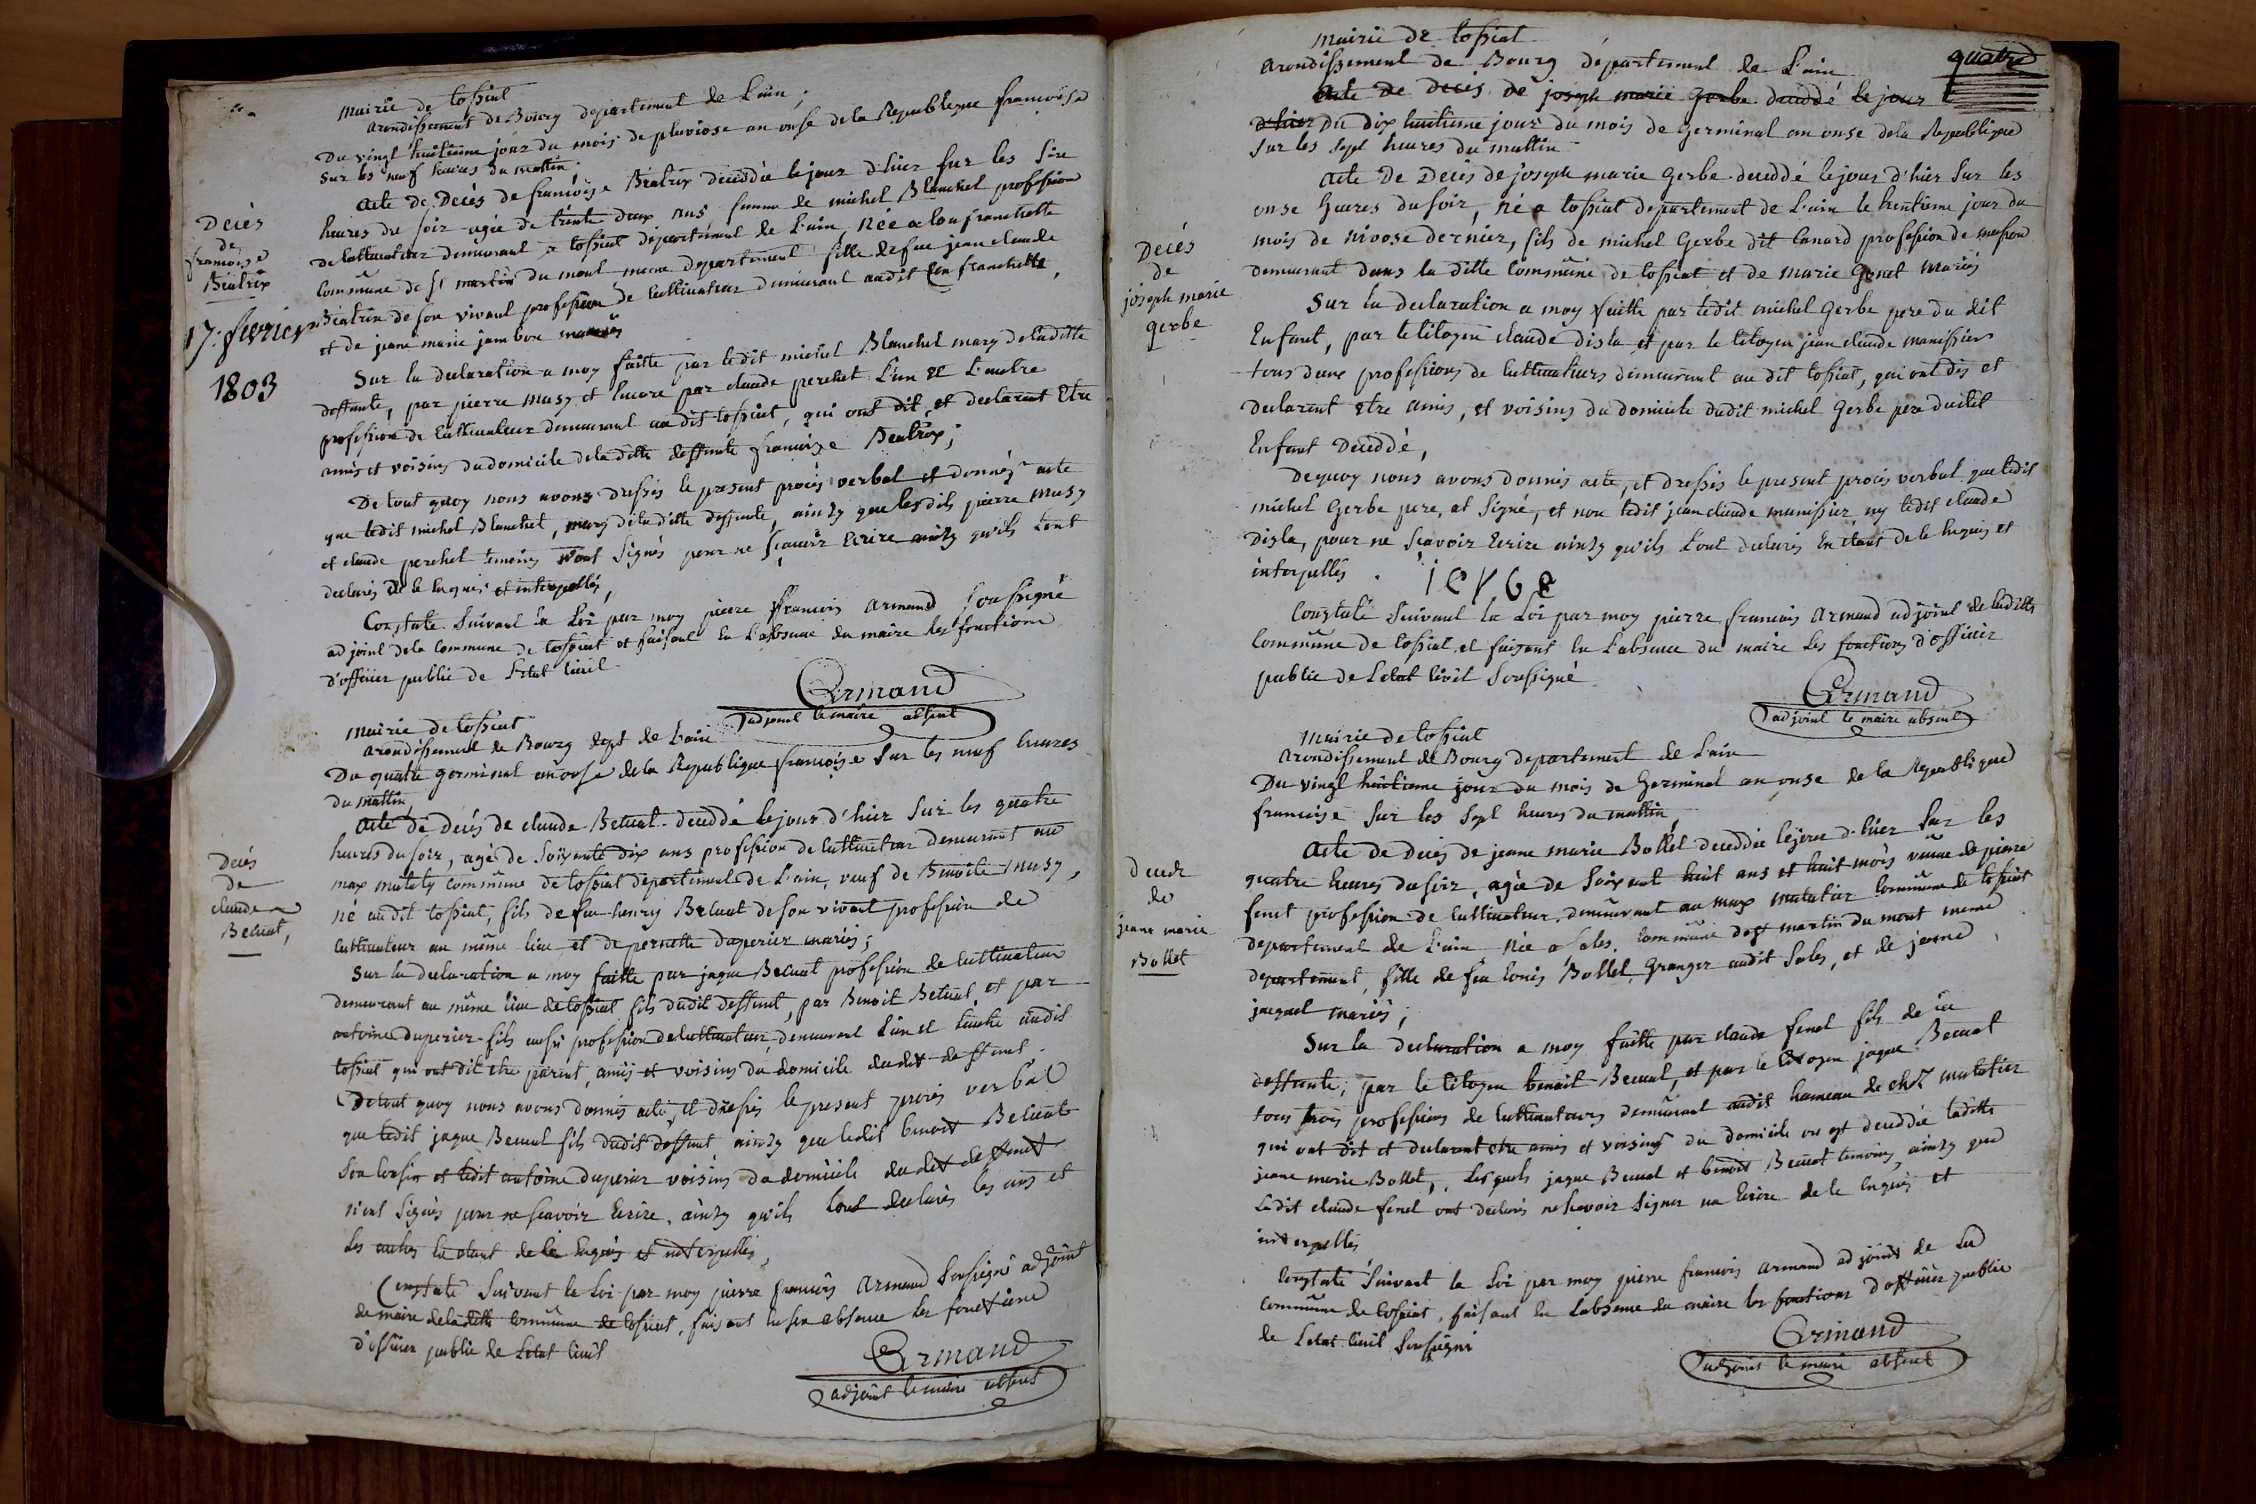 Mairie de tossiat
arondissement de Bourg departement de L'ain,
Du vingt huitieme jour du mois de pluviose an onse de la Republique francoise
sur les neuf heures du mattin
Decès
de
francoise
Beatrix
17. fevrier
1803
acte de Decès de francoise Beatrix decedée le jour d'hier sur les six
heures du soir agée de trente deux ans femme de michel Blanchet profession
de cultivateur demeurant a tossiat département de L'ain, Née a
Commune de st martin du mont meme departement fille de feu jean claude
Beatrix de son vivant profession de Cultivateur demeurant audit
et de jeane marie jambon mariés
Sur la declaration a moy faitte par ledit michel Blanchet mary de laditte
deffunte, par pierre Musy et Encore par claude perchet L'un et L'autre
profession de Cultivateur demeurant au dit tossiat, qui ont dit, et declarent Etre
amis et voisins du domicile de la ditte deffunte francoise Beatrix;
De tout quoy nous avons dressés le present procès verbal et donnés acte
que ledit michel Blanchet, mary de la ditte deffunte, ainsy que les dits pierre Musy
et claude perchet temoins n'ont signés pour ne sçavoir Ecrire ainsy qu'ils L'ont
declarés de ce Enquis et interpellés,
Constaté suivant la Loi par moy pierre francois armand soussigné
adjoint de la Commune de tossiat et faisant en L'absence du maire les fonctions
d'officier public de L'etat Civil
Armand
adjoint le maire absent
Mairie de tossiat
arondissement de Bourg dept de L'ain
Du quatre germinal an onse de la Republique françoise sur les neuf heures
du mattin
Decès
de
claude
Becuat,
acte de decès de claude Becuat decedé le jour d'hier sur les quatre
heures du soir, agé de soixente dix ans profession de Cultivateur demeurant au
max commune de tossiat departement de L'ain, veuf de Benoite Musy,
né audit tossiat, fils de feu henry Becuat de son vivant profession de
Cultivateur au même lieu et de pernette duperier mariés;
Sur la declaration a moy faitte par jaque Becuat profession de Cultivateur
demeurant au même lieu de tossiat fils dudit deffunt, par Benoit Becuat, et par
antoine duperier fils aussi profession de cultivateur demeurant L'un et L'autre audit
tossiat qui ont dit etre parent, amis et voisins du domicile dudit deffunt
De tout quoy nous avons donnés acte, et dressés le present procès verbal
que ledit jaque Becuat fils dudit deffunt ainsy que ledit benoit Becuat
son cousin et ledit antoine duperier voisins du domicile du dit deffunt
n'ont signés pour ne sçavoir Ecrire, ainsy qu'ils L'ont declarés les uns et
les autres En etant de ce Enquis et interpellés,
Constaté suivant la Loi par moy pierre francois armand soussigné adjoint
de maire de laditte commune de tossiat, faisant en son absence les fonctions
d'officier public de L'etat Civil
Armand
adjoint le maire absent
quatre
mairie de tossiat
arondissement de Bourg département de L'ain
acte de decès de joseph marie gerbe decedé le jour
d'hier Du dix huitieme jour du mois de germinal an onse de la Republique
sur les sept heures du mattin
Decès
de
joseph marie
gerbe
acte De Decès de joseph marie gerbe decedé le jour d'hier sur les
onse heures du soir, né a tossiat departement de L'ain le trentieme jour du
mois de nivose dernier, fils de michel gerbe dit Canard profession de masson
demeurant dans la ditte Commune de tossiat et de marie mariés
Sur la declaration a moy faitte par ledit michel gerbe pere du dit
Enfant, par le citoyen claude disla et par le citoyen jean claude manissier
tous deux professions de Cultivateurs demeurant au dit tossiat, qui ont dis et
declarent etre amis, et voisins du domicile dudit michel gerbe pere dudit
Enfant Decedé,
Dequoy nous avons donnés acte, et dressés le present procès verbal que ledit
michel gerbe pere, at signé, et non ledit jean claude manissier ny ledit claude
Disla, pour ne sçavoir Ecrire ainsy qu'ils L'ont declarés En etant de ce Enquis et
interpellés.
Constaté suivant la Loi par moy pierre francois armand adjoint de laditte
Commune de tossiat et faisant en L'absence du maire les fonctions d'officier
public de L'etat Civil soussigné
Armand
adjoint le maire absent
Mairie de tossiat
arondissement de Bourg departement de L'ain
Du vingt huitieme jour du mois de Germinal an onse de la Republique
francoise sur les sept heures du mattin,
Decds
de
jeane marie
Bollet
Acte de decès de jeane marie Bollet decedée le jour d'hier sur les
quatre heures du soir, agée de soixent huit ans et huit mois veuve de pierre
fenet profession de Cultivateur, demeurant au max commune de tossiat
departement de L'ain Née a Sales, commune de st martin du mont meme
departement, fille de feu Louis Bollet, Granger audit Sales, et de jeane
jacquet mariés;
Sur la declaration a moy faitte par claude fenet fils de la
deffunte; par le citoyen benoit Becuat, et par le citoyen jaque Becuat
tous trois professions de Cultivateurs demeurant audit hameau de chez
qui ont dit et declarent etre amis et voisins du domicile ou est decedée laditte
jeane marie Bollet, Lesquels jaque Becuat et benoit Becuat temoins, ainsy que
Ledit claude fenet ont declarés ne scavoir signer ne Ecrire de ce Enquis et
interpellés
Constaté suivant la Loi par moy pierre francois armand adjoint de La
Commune de tossiat, faisant en L'absence du maire les fonctions d'officier public
de L'etat Civil soussigné
Armand
adjoint le maire absent